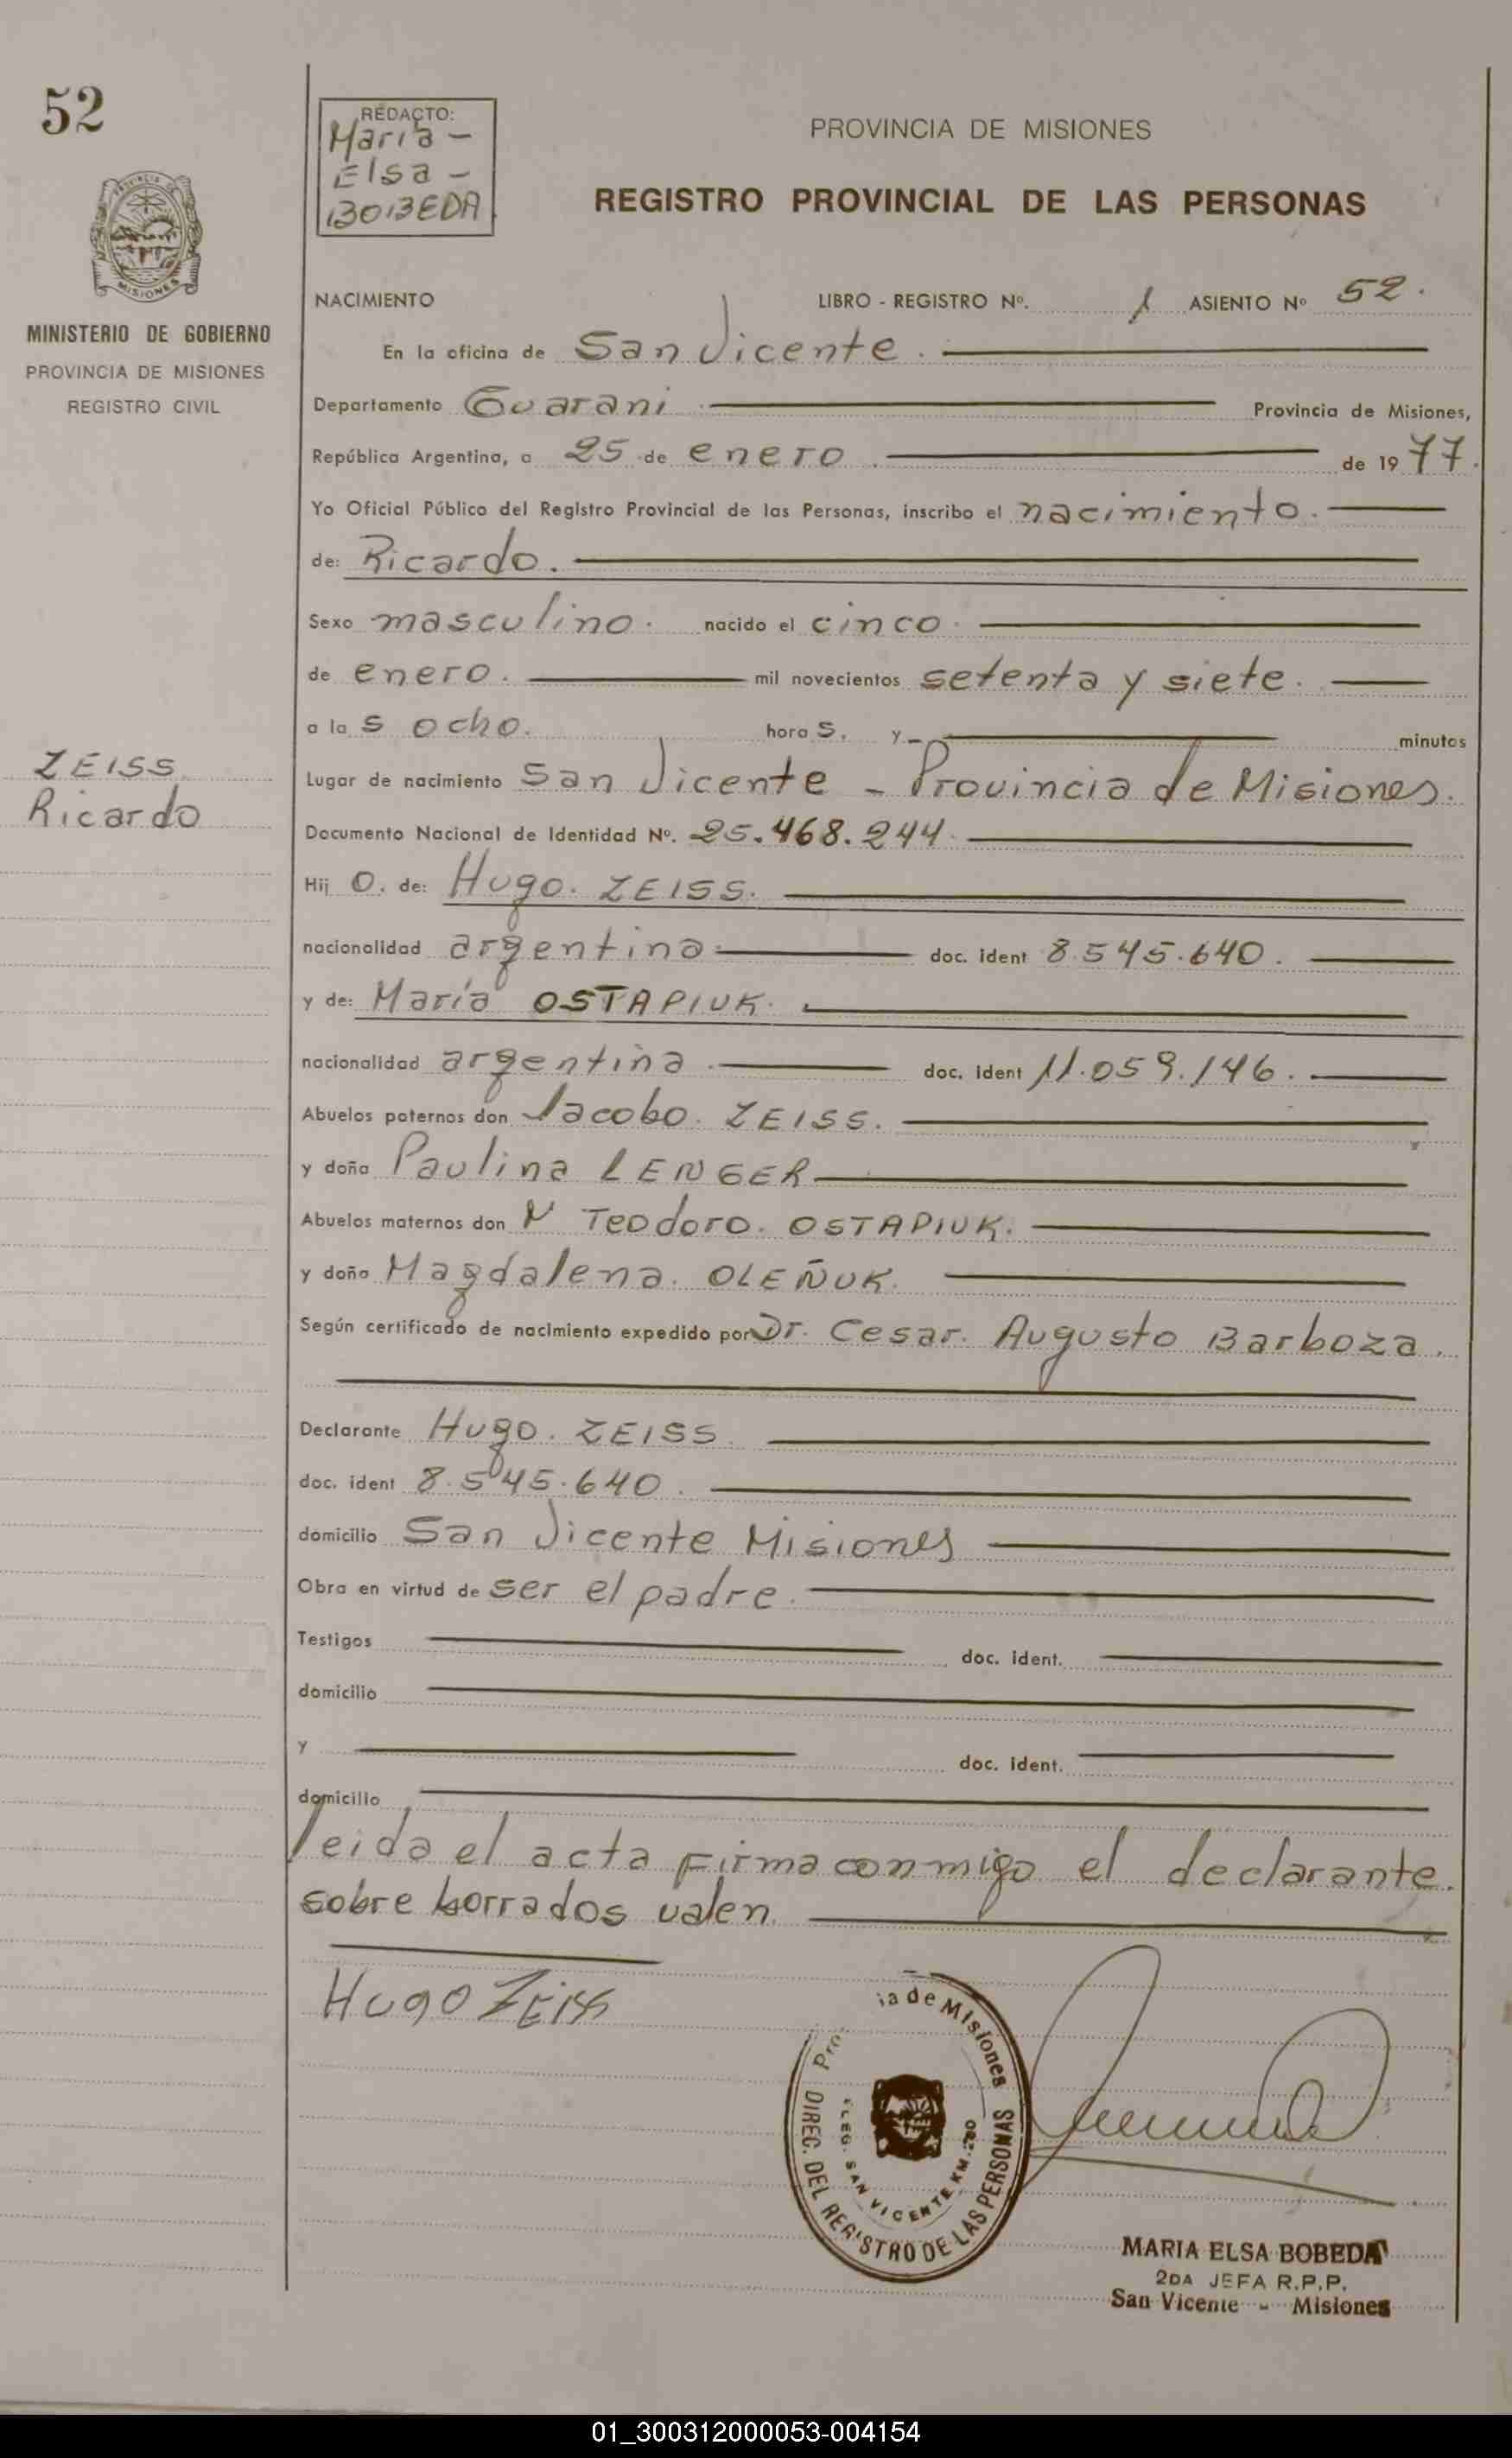 52
REDACTO:
Maria -
Elsa -
BOBEDA
PROVINCIA DE MISIONES
REGISTRO PROVINCIAL DE LAS PERSONAS
MISIONES
MINISTERIO DE GOBIERNO
PROVINCIA DE MISIONES
REGISTRO CIVIL
NACIMIENTO LIBRO - REGISTRO Nº. 1 ASIENTO Nº 52.
En la oficina de San Vicente.
Departamento Guarani Provincia de Misiones,
República Argentina, a 25 de enero de 1977.
Yo Oficial Público del Registro Provincial de las Personas, inscribo el nacimiento.
de: Ricardo.
Sexo masculino. nacido el cinco.
de enero. mil novecientos setenta y siete.
a las ocho. horas. y -
minutos
ZEISS
Ricardo
Lugar de nacimiento San Vicente - Provincia de Misiones.
Documento Nacional de Identidad Nº. 25.468.244.
Hijo. de: Hugo. ZEISS.
nacionalidad argentina doc. ident 8.545.640.
y de: María OSTAPIUK.
nacionalidad argentina doc. ident 11.059.146.
Abuelos paternos don Jacobo. ZEISS.
y doña Paulina LENGER
Abuelos maternos don Teodoro. OSTAPIUK.
y doña Magdalena. OLEÑUK.
Según certificado de nacimiento expedido por Dr. Cesar. Augusto Barboza.
Declarante Hugo. ZEISS.
doc. ident 8.545.640.
domicilio San Vicente Misiones
Obra en virtud de ser el padre.
Testigos doc. ident.
domicilio
y doc. ident.
domicilio
leida el acta firma conmigo el declarante.
sobre borrados valen.
Hugo ZEiss
Pro ia de Misiones
DIREC. DEL REGISTRO DE LAS PERSONAS
SAN VICENTE KM.
MARIA ELSA BOBEDA
2DA JEFA R.P.P.
San Vicente - Misiones
01_300312000053-004154